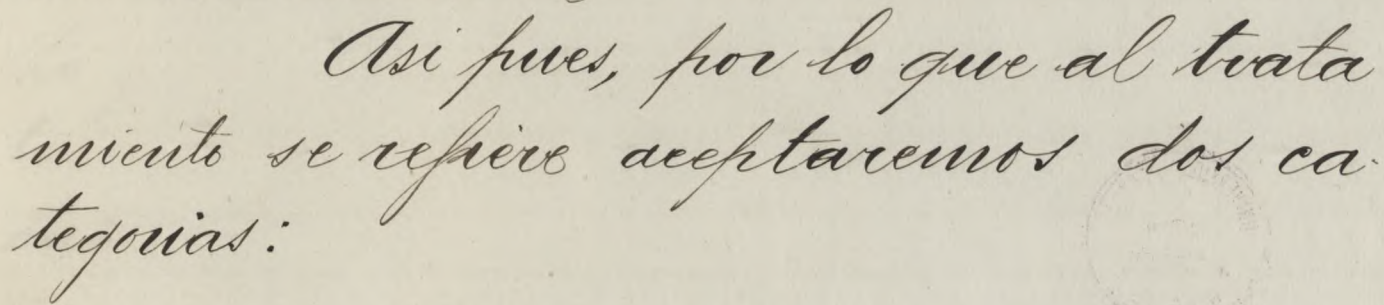 Asi pues, por lo que al trata
miento se refiere aceptaremos dos ca-
tegorias: